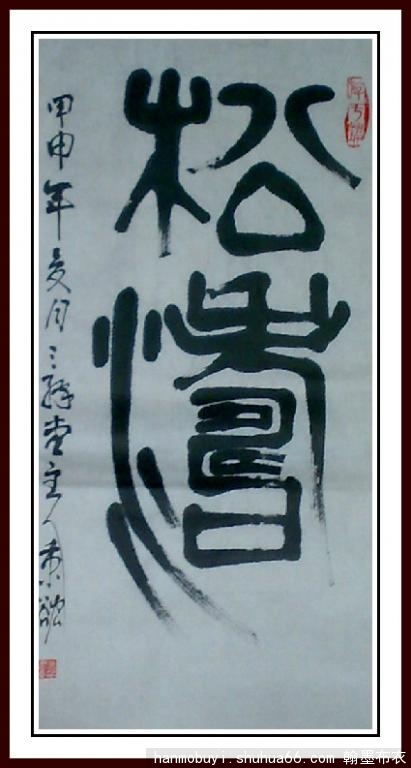 松濤
甲申年夏月三 堂主人
hanmobuyi.shuhua66.com 翰墨布衣